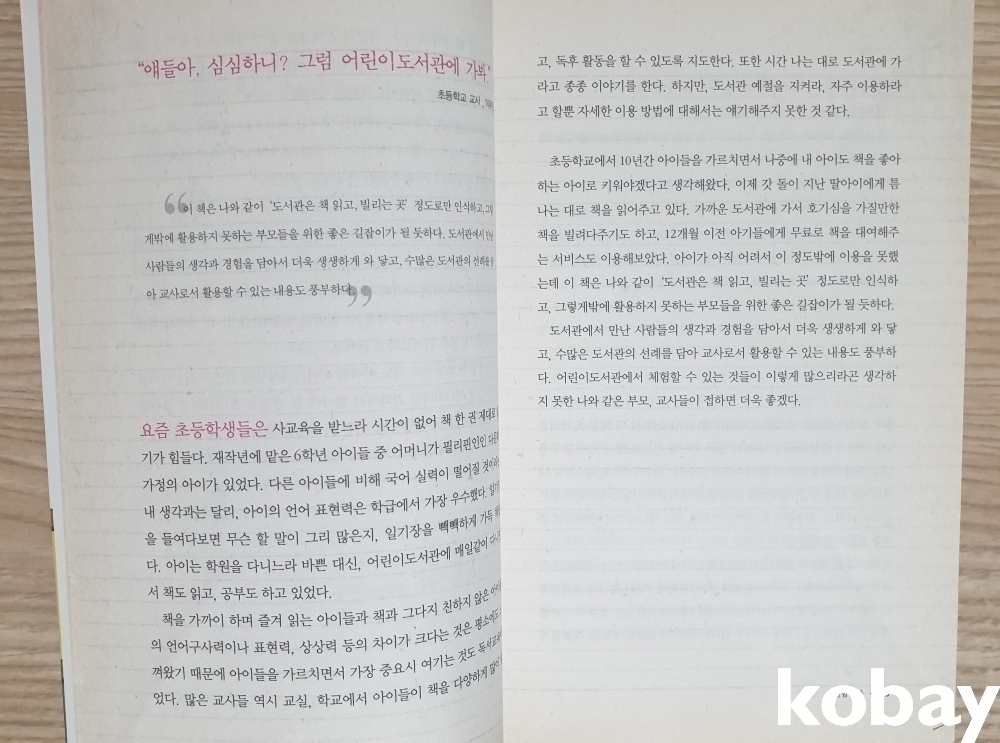 “얘들아, 심심하니? 그럼 어린이도서관에 가봐.”
초등학교 교사
이 책은 나와 같이 ‘도서관은 책 읽고, 빌리는 곳’ 정도로만 인식하고, 그렇
게밖에 활용하지 못하는 부모들을 위한 좋은 길잡이가 될 듯하다. 도서관에서 만난
사람들의 생각과 경험을 담아서 더욱 생생하게 와 닿고, 수많은 도서관의 선례를 담
아 교사로서 활용할 수 있는 내용도 풍부하다.
요즘 초등학생들은 사교육을 받느라 시간이 없어 책 한 권 제대로
기가 힘들다. 재작년에 맡은 6학년 아이들 중 어머니가 필리핀인인 다문화
가정의 아이가 있었다. 다른 아이들에 비해 국어 실력이 떨어질 것이라는
내 생각과는 달리, 아이의 언어 표현력은 학급에서 가장 우수했다. 일기장
을 들여다보면 무슨 할 말이 그리 많은지, 일기장을 빽빽하게 가득
다. 아이는 학원을 다니느라 바쁜 대신, 어린이도서관에 매일같이 다니면
서 책도 읽고, 공부도 하고 있었다.
책을 가까이 하며 즐겨 읽는 아이들과 책과 그다지 친하지 않은
의 언어구사력이나 표현력, 상상력 등의 차이가 크다는 것은 평소에도
껴왔기 때문에 아이들을 가르치면서 가장 중요시 여기는 것도
었다. 많은 교사들 역시 교실, 학교에서 아이들이 책을 다양하게 많이
고, 독후 활동을 할 수 있도록 지도한다. 또한 시간 나는 대로 도서관에 가
라고 종종 이야기를 한다. 하지만, 도서관 예절을 지켜라, 자주 이용하라
고 할뿐 자세한 이용 방법에 대해서는 얘기해주지 못한 것 같다.
초등학교에서 10년간 아이들을 가르치면서 나중에 내 아이도 책을 좋아
하는 아이로 키워야겠다고 생각해왔다. 이제 갓 돌이 지난 딸아이에게 틈
나는 대로 책을 읽어주고 있다. 가까운 도서관에 가서 호기심을 가질만한
책을 빌려다주기도 하고, 12개월 이전 아기들에게 무료로 책을 대여해주
는 서비스도 이용해보았다. 아이가 아직 어려서 이 정도밖에 이용을 못했
는데 이 책은 나와 같이 ‘도서관은 책 읽고, 빌리는 곳’ 정도로만 인식하
고, 그렇게밖에 활용하지 못하는 부모들을 위한 좋은 길잡이가 될 듯하다.
도서관에서 만난 사람들의 생각과 경험을 담아서 더욱 생생하게 와 닿
고, 수많은 도서관의 선례를 담아 교사로서 활용할 수 있는 내용도 풍부하
다. 어린이도서관에서 체험할 수 있는 것들이 이렇게 많으리라곤 생각하
지 못한 나와 같은 부모, 교사들이 접하면 더욱 좋겠다.
kobay